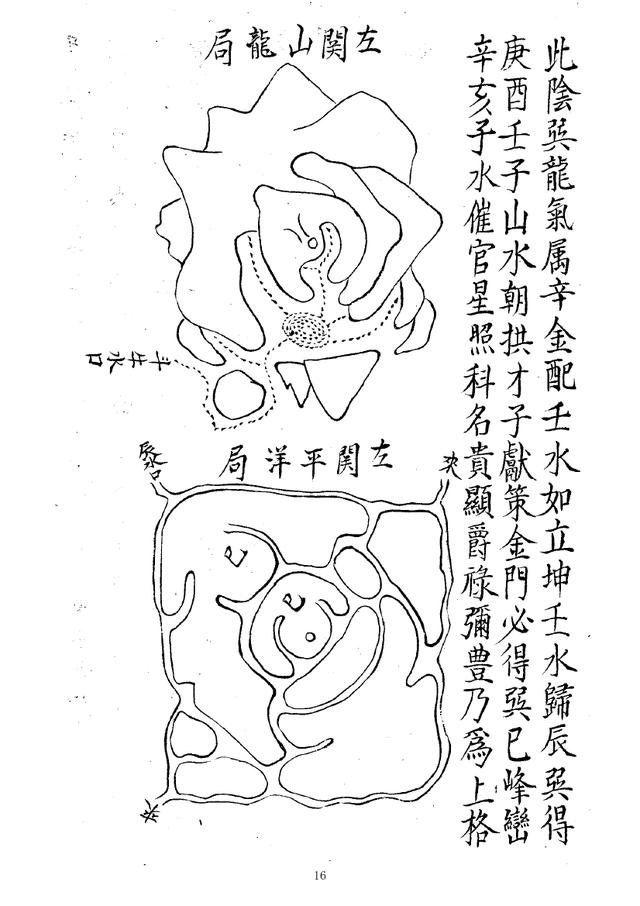 此陰巽龍氣属辛金配壬水如立坤壬水歸辰巽得
庚酉壬子山水朝拱才子獻策金門必得巽巳峰巒
辛亥子水催官星照科名貴顯爵祿彌豊乃為上格
左関山龍局
斗牛水口
左関平洋局
辰水口
16